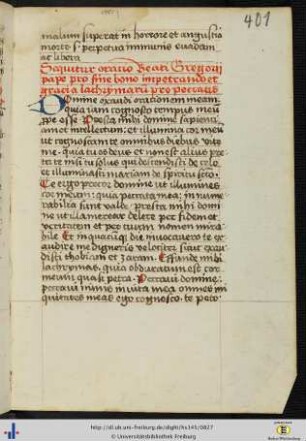 401
malum superat in horrore et angustia
mortis sed perpetua immunis evadam
ac libera
Sequitur oratio Beati Gregorij
pape pro fine bono impetrando et
gracia lachrimarum pro peccatis
Domine exaudi orationem meam
quia iam cognosco tempus meum
prope esse Presta mihi domine sapienciam
et intellectum et illumina cor meum
ut cognoscam te omnibus diebus vite
mee quia tu es deus et non est alius preter
te nisi tu solus qui descendisti de celo
et illuminasti mariam de spiritu sancto
Te ergo precor domine ut illumines
cor meum quia peccata mea innumerabilia
sunt valde presta mihi domine
ut illa merear delere per fidem et
veritatem et per tuum nomen mirabile
Et in quacumque die invocavero te exaudire
me digneris velociter sicut exaudisti
thobiam et zaram Effunde mihi
lachrimas quia obduratum est cor
meum quasi petra Peccavi domine
peccavi nimis in vita mea omnes iniquitates
meas ego cognosco te peto
http://dl.ub.uni-freiburg.de/diglit/hs145/0827
© Universitätsbibliothek Freiburg